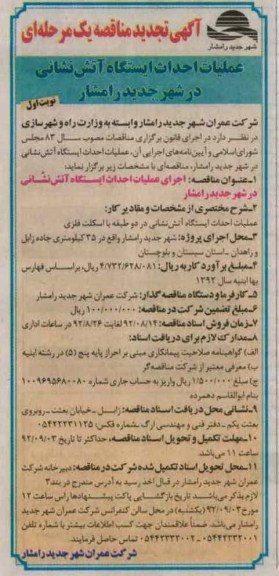 شهر جدید رامشار
آگهی تجدید مناقصه یک مرحله ای
عملیات احداث ایستگاه آتش نشانی
در شهر جدید رامشار
نوبت اول
شرکت عمران شهر جدید رامشار وابسته به وزارت راه و شهرسازی
در نظر دارد در اجرای قانون برگزاری مناقصات مصوب سال ۸۳ مجلس
شورای اسلامی و آیین نامه های اجرایی آن، عملیات احداث ایستگاه آتش نشانی
در شهر جدید رامشار، مناقصه ای با مشخصات زیر برگزار نماید:
۱-عنوان مناقصه: اجرای عملیات احداث ایستگاه آتش نشانی
در شهر جدید رامشار
۲-شرح مختصری از مشخصات و مقادیر کار:
عملیات احداث ایستگاه آتش نشانی در دو طبقه با اسکلت فلزی
۳-محل اجرای پروژه: شهر جدید رامشار واقع در ۳۵ کیلومتری جاده زابل
و زاهدان - استان سیستان و بلوچستان
۴-مبلغ برآورد کار به ریال: ۴/۷۳۲/۶۲۸/۰۸۱ ریال، براساس فهارس
بها ابنیه سال ۱۳۹۲
۵-کارفرما و دستگاه مناقصه گذار: شرکت عمران شهر جدید رامشار
۶-مبلغ تضمین شرکت در مناقصه: ۱۰۰/۰۰۰/۰۰۰ ریال
۷-زمان فروش اسناد مناقصه: ۹۲/۰۸/۱۴ لغایت ۹۲/۸/۲۶ در ساعات اداری
۸-مدارک لازم برای دریافت اسناد:
الف) گواهینامه صلاحیت پیمانکاری مبنی بر احراز پایه پنج (۵) در رشته ابنیه
ب) معرفی معتبر از شرکت مناقصه گر
ج) مبلغ ۱/۵۰۰/۰۰۰ ریال واریز به حساب جاری شماره ۱۰۰۹۶۹۵۶۸۰۰۸۰
بنام ابوالقاسم دهمرده
۹-نشانی محل دریافت اسناد مناقصه: زابل - خیابان بعثت - روبروی
بعثت یکم - دفتر فنی و مهندسی ارگ. شماره فکس: ۰۵۴۲۲۲۳۱۱۲۵
۱۰-مهلت تکمیل و تحویل اسناد مناقصه: حداکثر تا تاریخ ۹۲/۰۹/۰۳
ساعت ۱۱ می باشد.
۱۱-محل تحویل اسناد تکمیل شده شرکت در مناقصه: دبیرخانه شرکت
عمران شهر جدید رامشار در قبال اخذ رسید به آدرس مندرج در بند ۳
لازم بذکر می باشد تاریخ بازگشایی پاکت پیشنهادها راس ساعت ۱۲
مورخ ۹۲/۰۹/۰۳ (یکشنبه) در محل سالن کنفرانس شرکت عمران شهر جدید
رامشار می باشد. ضمناً علاقمندان جهت کسب اطلاعات بیشتر با شماره تلفن
۰۵۴۴۲۳۳۲۰۰۱ - ۰۵۴۴۲۳۳۲۰۰۲ تماس حاصل فرمایند.
شرکت عمران شهر جدید رامشار